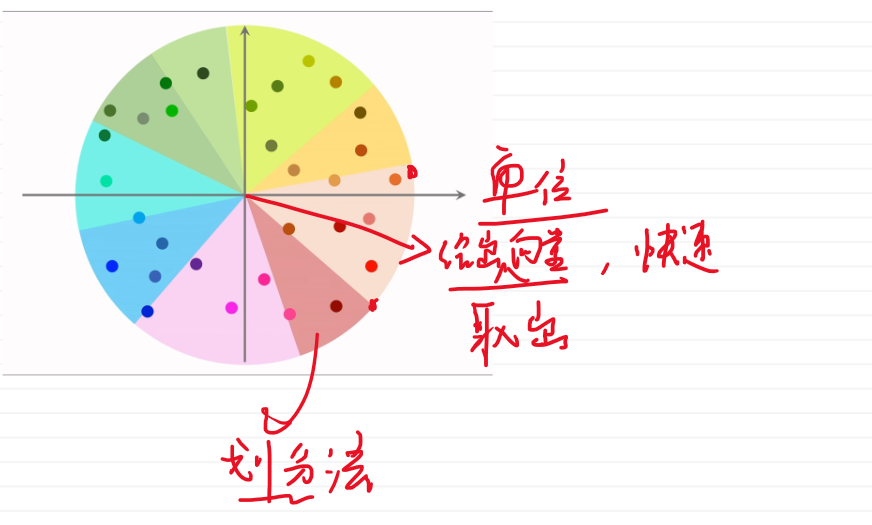 单位
给出向量，快速
取出
划分法